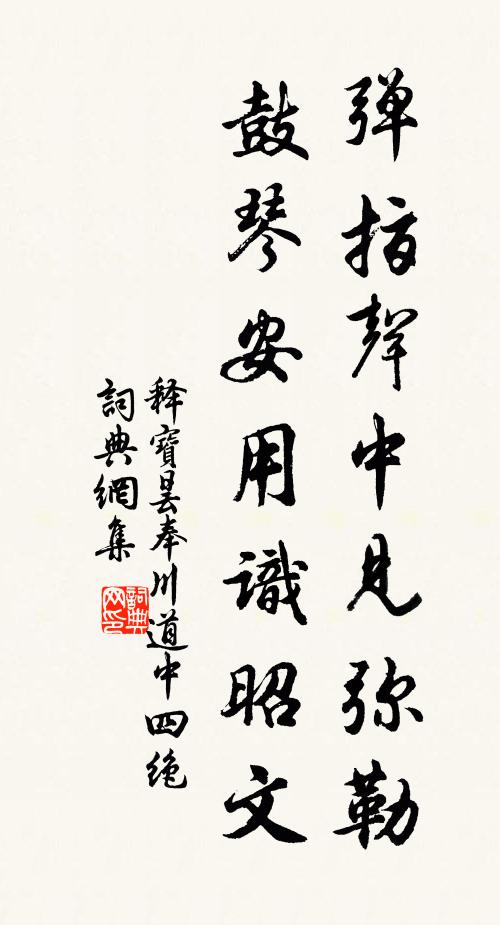 弹指聲中見弥勒
鼓琴安用識昭文
释寶曇奉川道中四绝
詞典網集
詞典网印